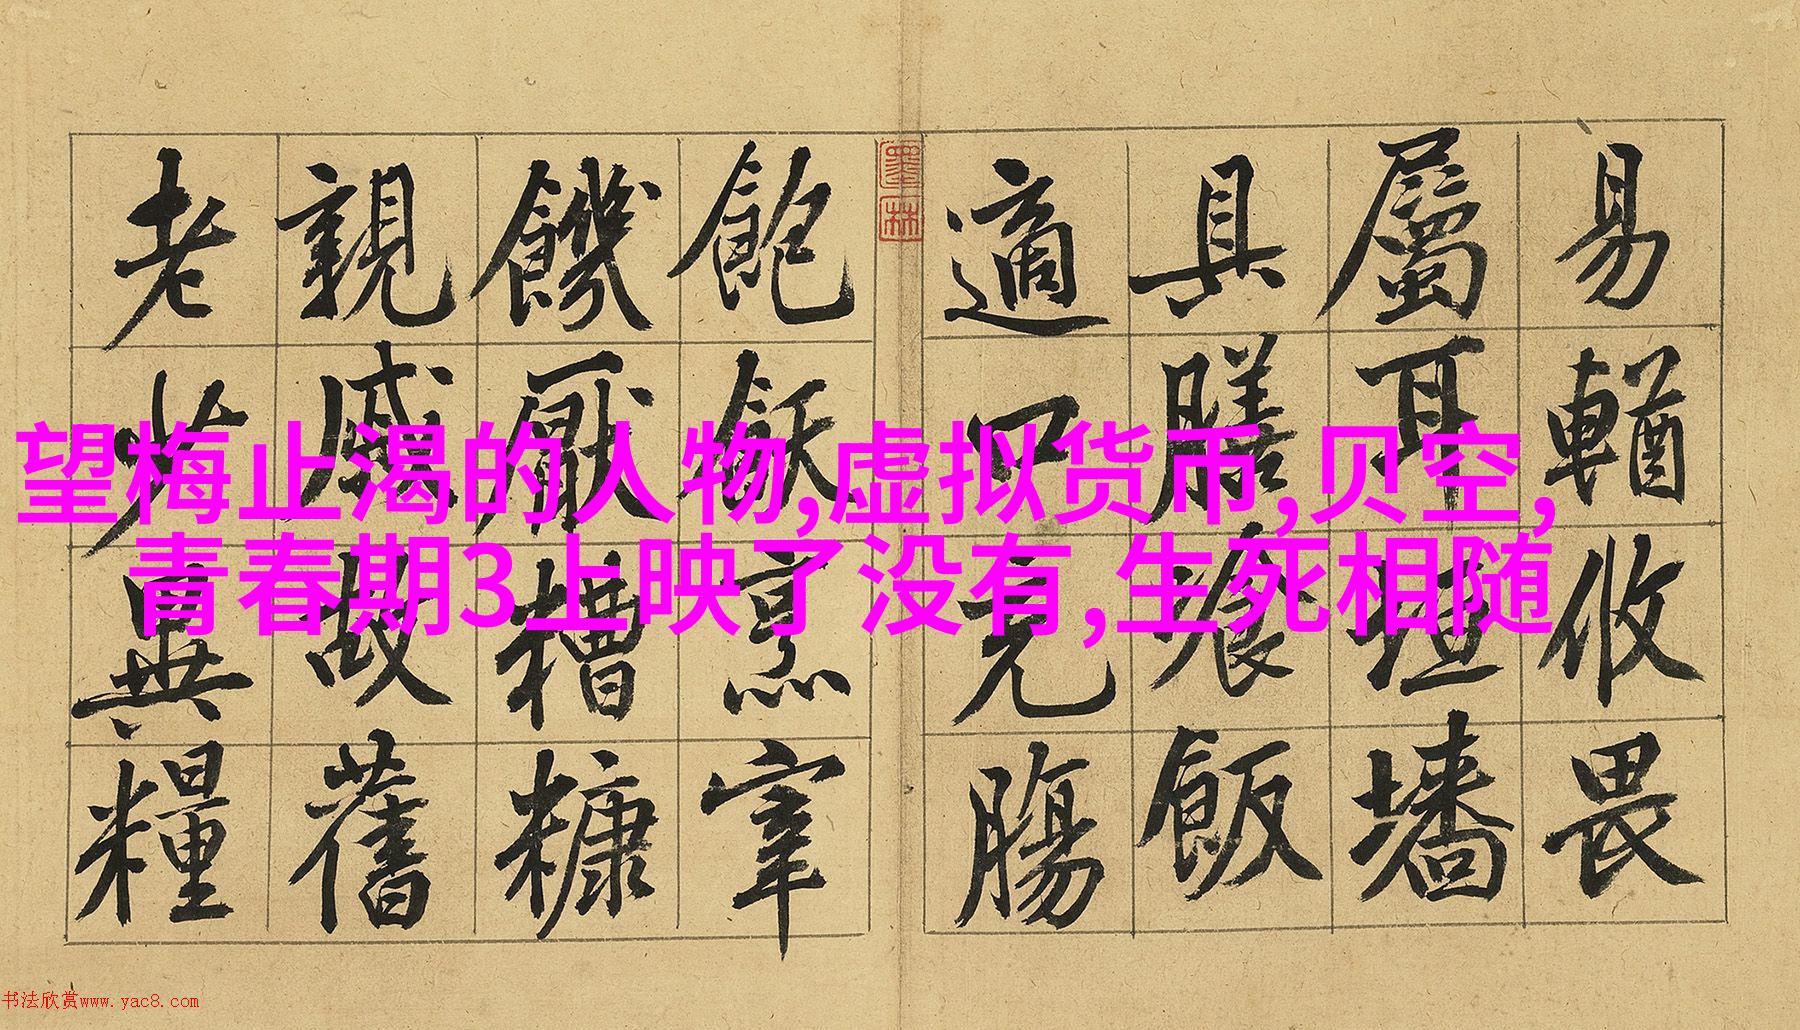 易輶攸畏
屬耳垣墻
具膳飡飯
適口充腸
墨林
飽飫烹宰
饑厭糟糠
親戚故舊
老少異糧
望梅止渴的人物,虚拟货币,贝空,
青春期3上映了没有,生死相随
书法欣赏www.yac8.com